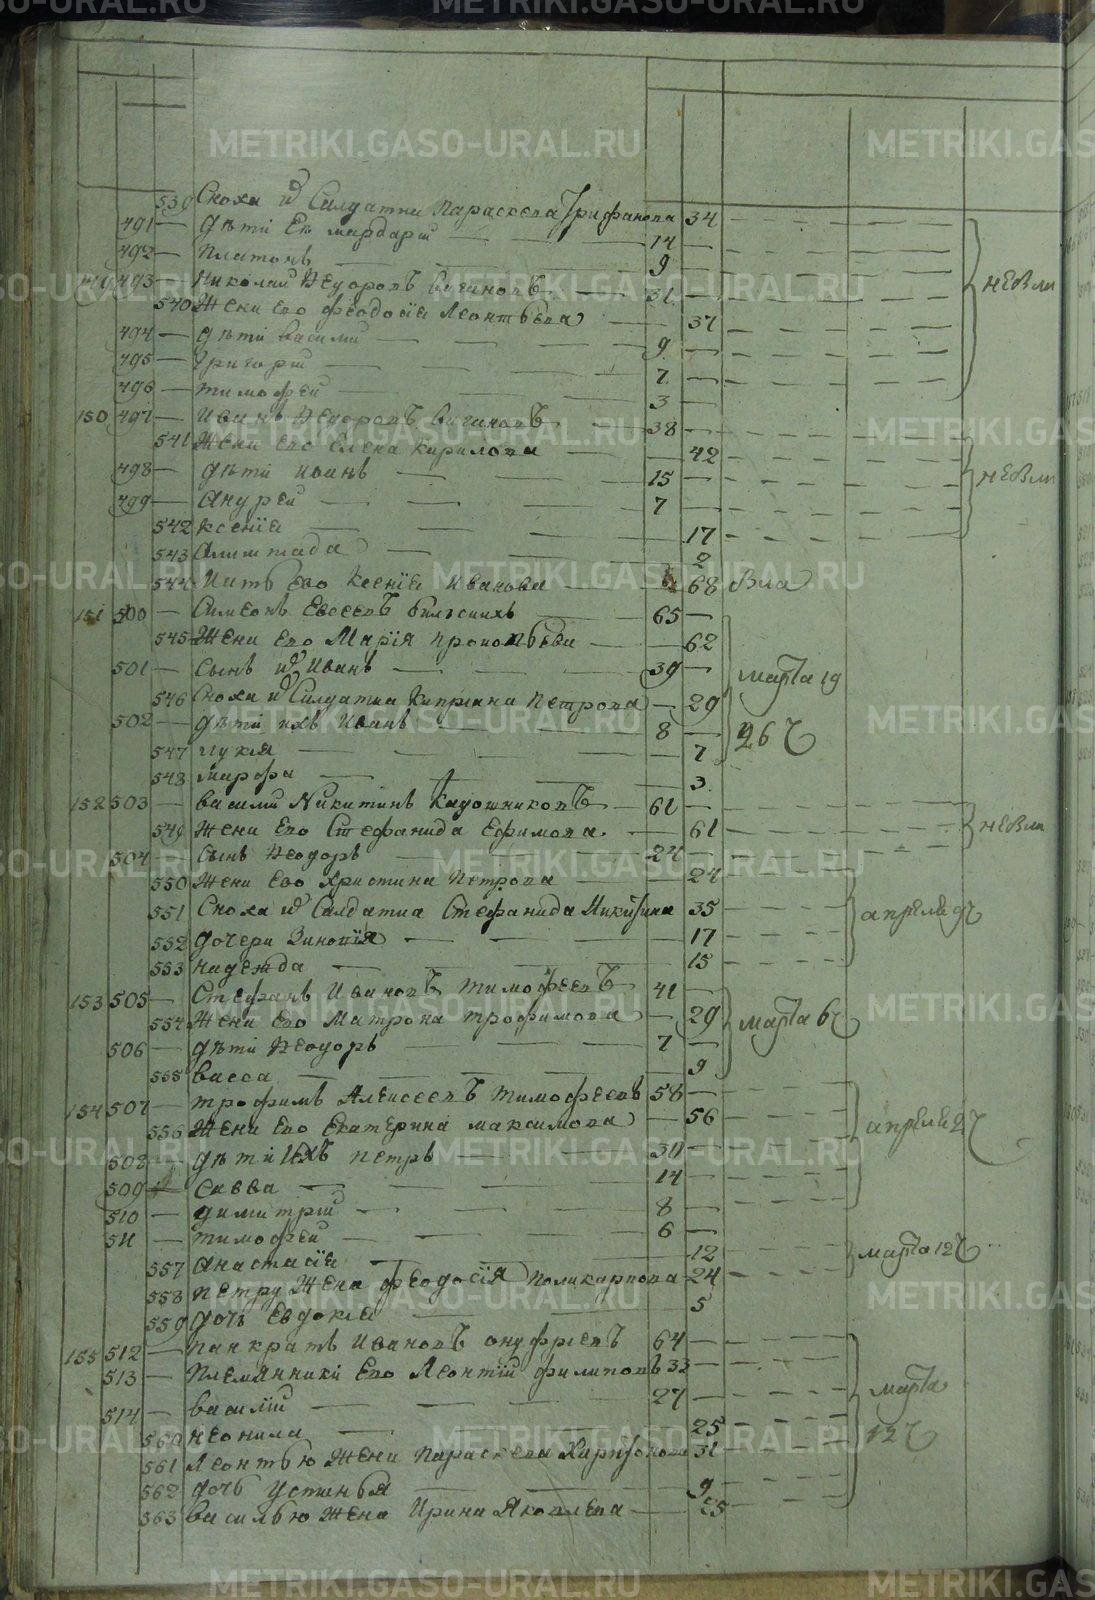 METRIKI.GASO-URAL.RU
539 Сноха и Салдатка Параскева Трифанова 34
491 — Дѣти Ея Мардарій — 14 —
492 — Платонъ — 9 —
149 493 — Николай Ѳедоровъ — 31 — невли
540 Жена Его Феодосія Леонтьева 37
494 — Дѣти Василій — 9 —
495 — Григорій — 7 —
496 — Тимофей — 3 —
150 497 — Иванъ Ѳедоровъ — 38 —
541 Жена Его Елена Кирилова — 42
498 — Дѣти Иванъ — 15 — невли
499 — Андрей — 7 —
542 Ксенія — 17
543 — 2
544 Мать Ево Ксенія Иванова — 68 Вла
151 500 — Симеонъ Евсеевъ — 65 —
545 Жена Его Марія — 62
501 — Сынъ и Иванъ — 39 — марта 19
546 Сноха и Салдатка Петрова — 29
502 — Дѣти ихъ Иванъ — 8 — 26 ч
547 Лукія — 7
548 Марфа — 3
152 503 — Василий Никитинъ — 61 —
549 Жена Ево Стефанида Ефимова — 61 невли
504 — Сынъ Ѳеодоръ — 24 —
550 Жена Ево Христина Петрова — 24
551 Сноха и Салдатка Стефанида Никитина 35 апреля 9 ч
552 Дочери Зиновія — 17
553 Надежда — 15
153 505 — Стефанъ Ивановъ Тимофеевъ 41 —
554 Жена Ево Матрона Трофимова — 29 марта 6 ч
506 — Дѣти Ѳеодоръ — 7 —
555 Васса — 9
154 507 — Трофимъ Алексеевъ Тимофеевъ 58 —
556 Жена Его Екатерина Максимова — 56 апреля 2 ч
508 — Дѣти Ихъ Петръ — 30 —
509 — Савва — 14 —
510 — Димитрій — 8 —
511 — Тимофей — 6 —
557 Анастасія — 12 марта 12 ч
558 Петру Жена Феодосія Поликарпова 24
559 Дочь Евдокія — 5
155 512 — Панкратъ Ивановъ Онуфріевъ 64 —
513 — Племянники Его Леонтій Филиповъ 33 — марта
514 — Василій — 27 —
560 Неонила — 25 12 ч
561 Леонтью Жена Параскева Харитонова 31
562 Дочь Устинья — 9
563 Василью Жена Ирина Яковлева — 25